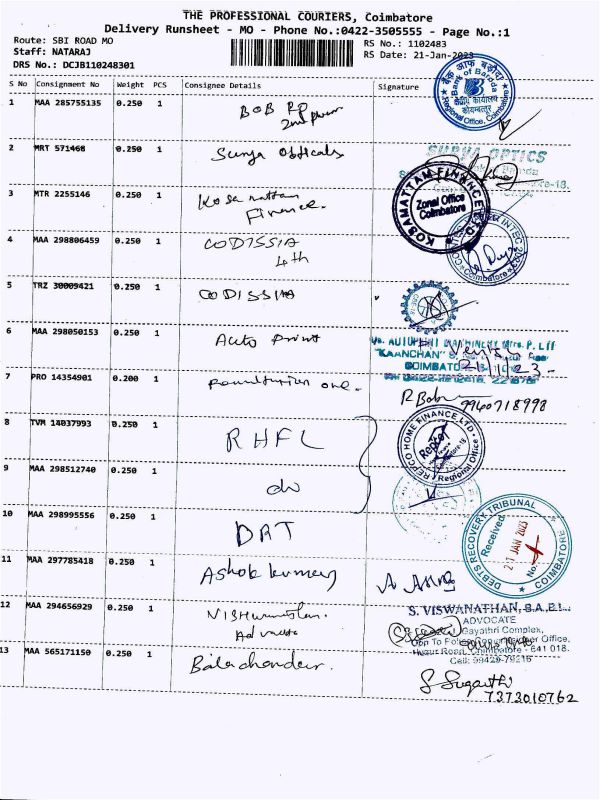 THE PROFESSIONAL COURIERS, Coimbatore
Delivery Runsheet - MO - Phone No.:0422-3505555 - Page No.:1
Route: SBI ROAD MO
Staff: NATARAJ
DRS No.: DCJB110248301
RS No.: 1102483
RS Date: 21-Jan-2023
S No Consignment No Weight PCS Consignee Details Signature
1 MAA 285755135 0.250 1 BOB RO
बैंक ऑफ बड़ौदा
Bank of Baroda
क्षेत्रीय कार्यालय
Regional Office, Coimbatore
2 MRT 571468 0.250 1 Surya Opticals
SURYA OPTICS
3 MTR 2255146 0.250 1 Kosamattam
Finance.
KOSAMATTAM FINANCE LTD
Zonal Office
Coimbatore
4 MAA 298806459 0.250 1 CODISSIA
4th
5 TRZ 30009421 0.250 1 CODISSIA
6 MAA 298050153 0.250 1 Auto print
"KAANCHAN"
COIMBATO
21/1/23
7 PRO 14354901 0.200 1 one.
R Babu
9940718998
8 TVM 14037993 0.250 1 RHFL
REPCO HOME FINANCE LTD
Repco
Regional Office
9 MAA 298512740 0.250 1 do
10 MAA 298995556 0.250 1 DRT
DEBTS RECOVERY TRIBUNAL
Received
21 JAN 2023
No.
COIMBATORE
11 MAA 297785418 0.250 1 Ashok kumar
12 MAA 294656929 0.250 1
Advocate
S. VISWANATHAN, B.A.B.L.,
ADVOCATE
Gayathri Complex,
Opp To Office,
Huzur Road, Coimbatore - 641 018.
Cell: 98429-79215
13 MAA 565171150 0.250 1 Balachander.
S Suganthi
7373010762